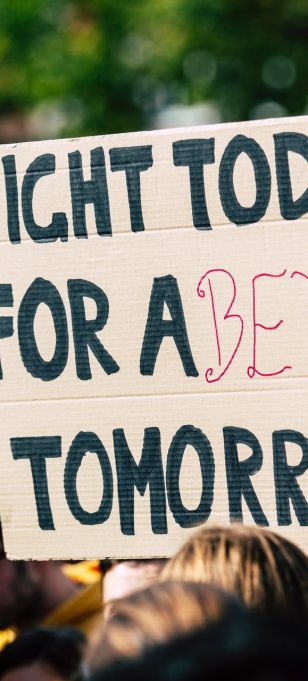 IGHT TOD
FOR A BET
TOMORR